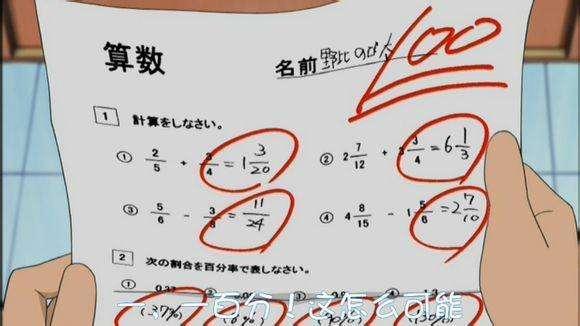 100
算数 名前 野比のび太
1 計算をしなさい。
① 2/5 + 3/4 = 1 3/20 ② 2 7/12 + 3 3/4 = 6 1/3
③ 5/6 - 3/8 = 11/24 ④ 4 8/15 - 1 5/6 = 2 7/10
2 次の割合を百分率で表しなさい。
① 0.37
(37%)
一，一百分！这怎么可能